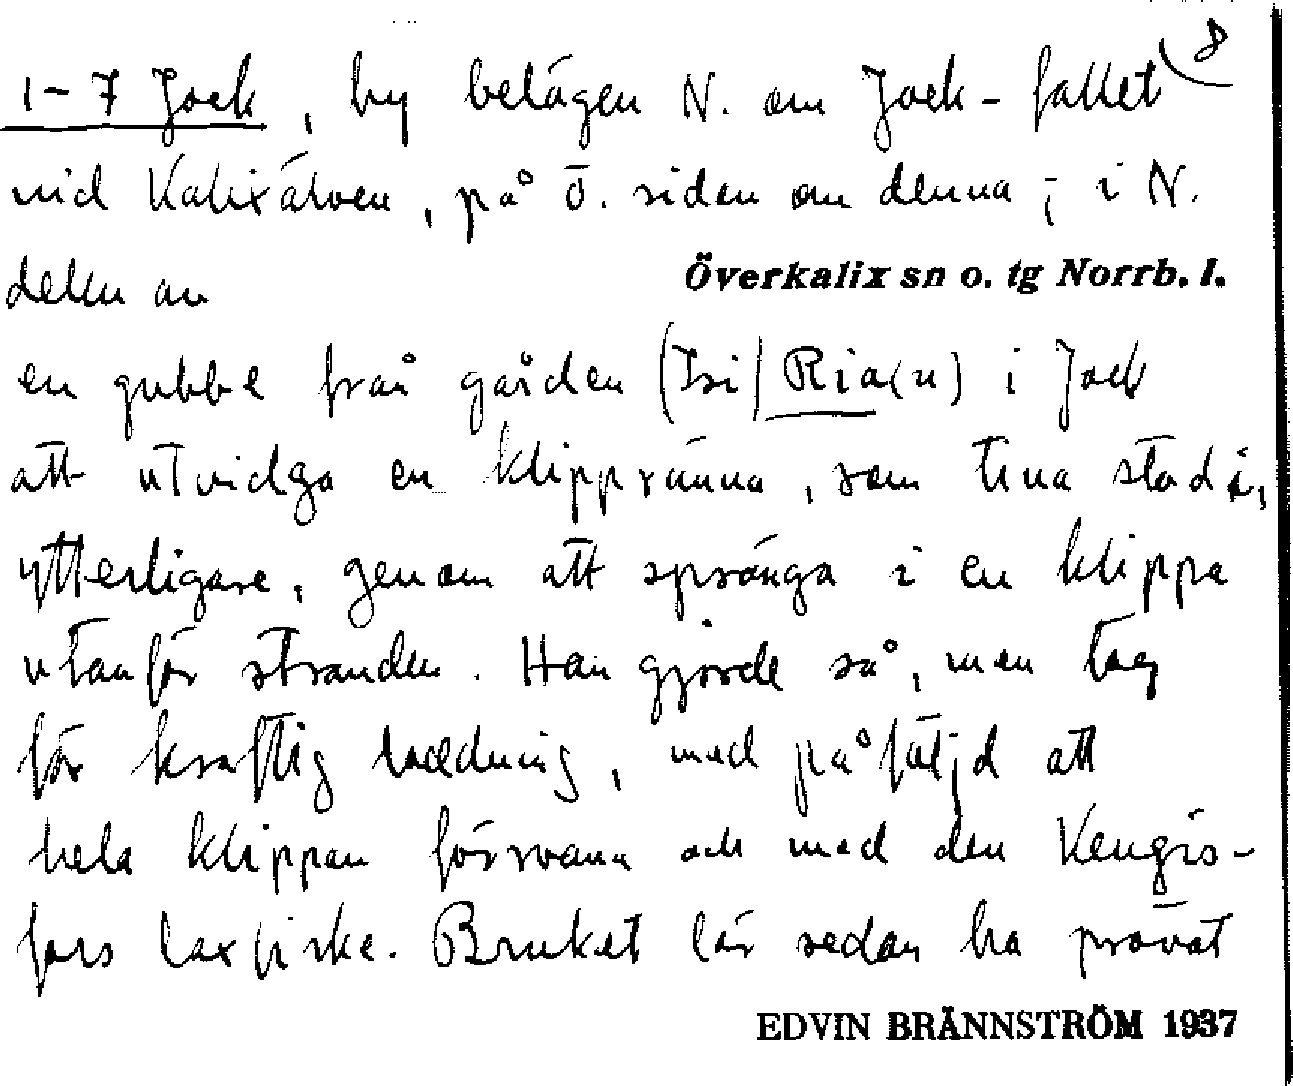 8
1-7 Jock, by belägen N. om Jock-fallet
vid Kalixälven, på ö. sidan om denna; i N.
delen av
Överkalix sn o. tg Norrb. l.
en gubbe från gården (Isi/Ria(n) i Jock
att utvidga en klippränna, som tina stod i,
ytterligare, genom att spränga i en klippa
utanför stranden. Han gjorde så, men tog
för kraftig laddning, med påföljd att
hela klippan försvann och med den Kengis-
fors laxfiske. Bruket lär sedan ha prövat
EDVIN BRÄNNSTRÖM 1937